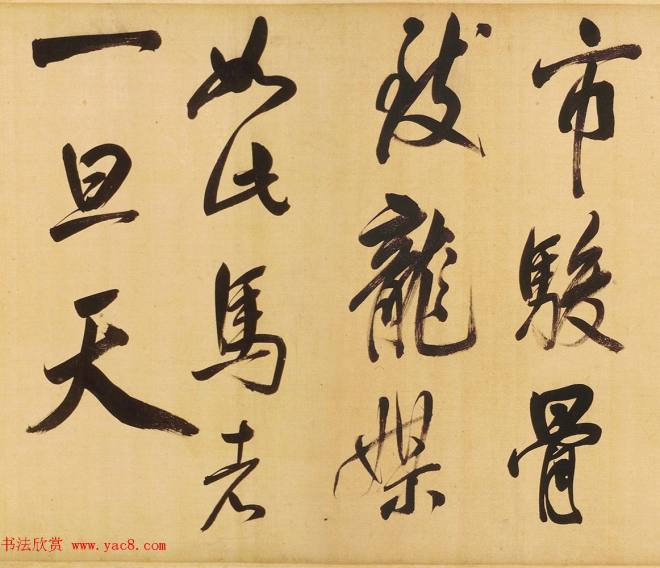 市駿骨
致龍媒
如此馬者
一旦天
书法欣赏 www.yac8.com